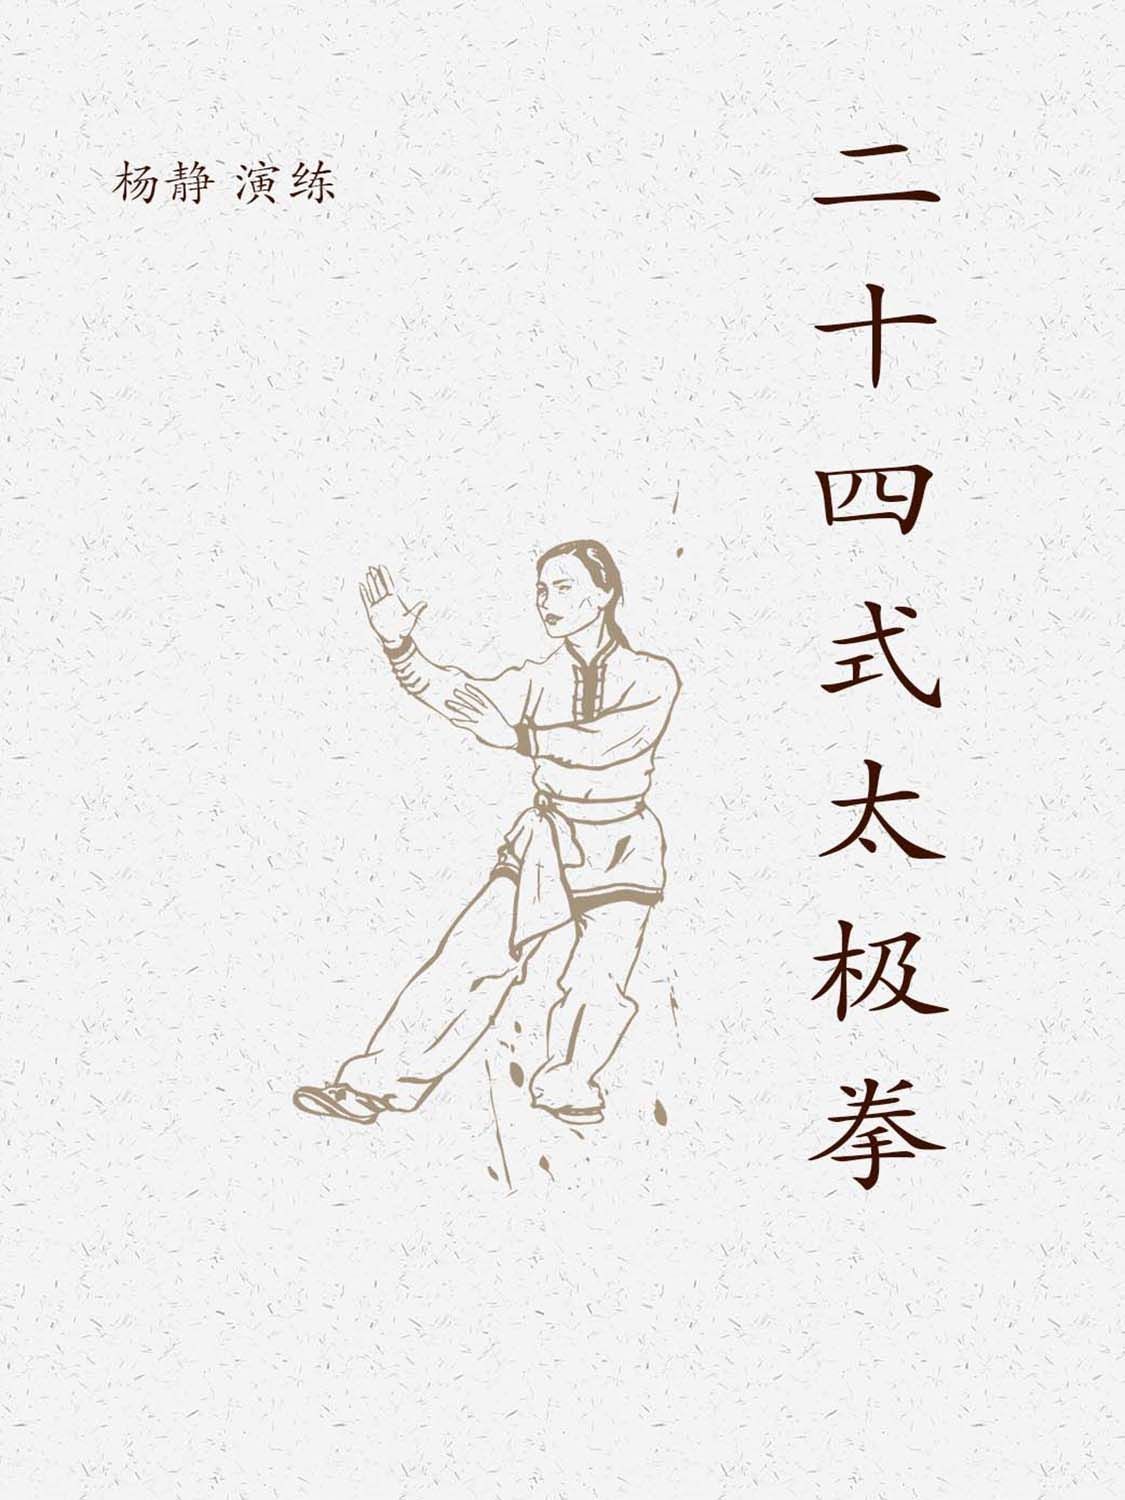 二十四式太极拳
杨静 演练